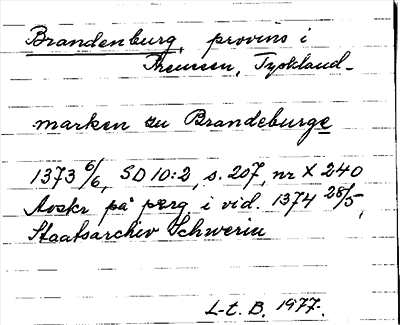 Brandenburg, provins i
Preussen, Tyskland.
marken zu Brandeburge
1373 6/6, SD 10:2, s. 207, nr X 240
Avskr på perg i vid. 1374 28/5,
Staatsarchiv Schwerin
L-t. B. 1977.